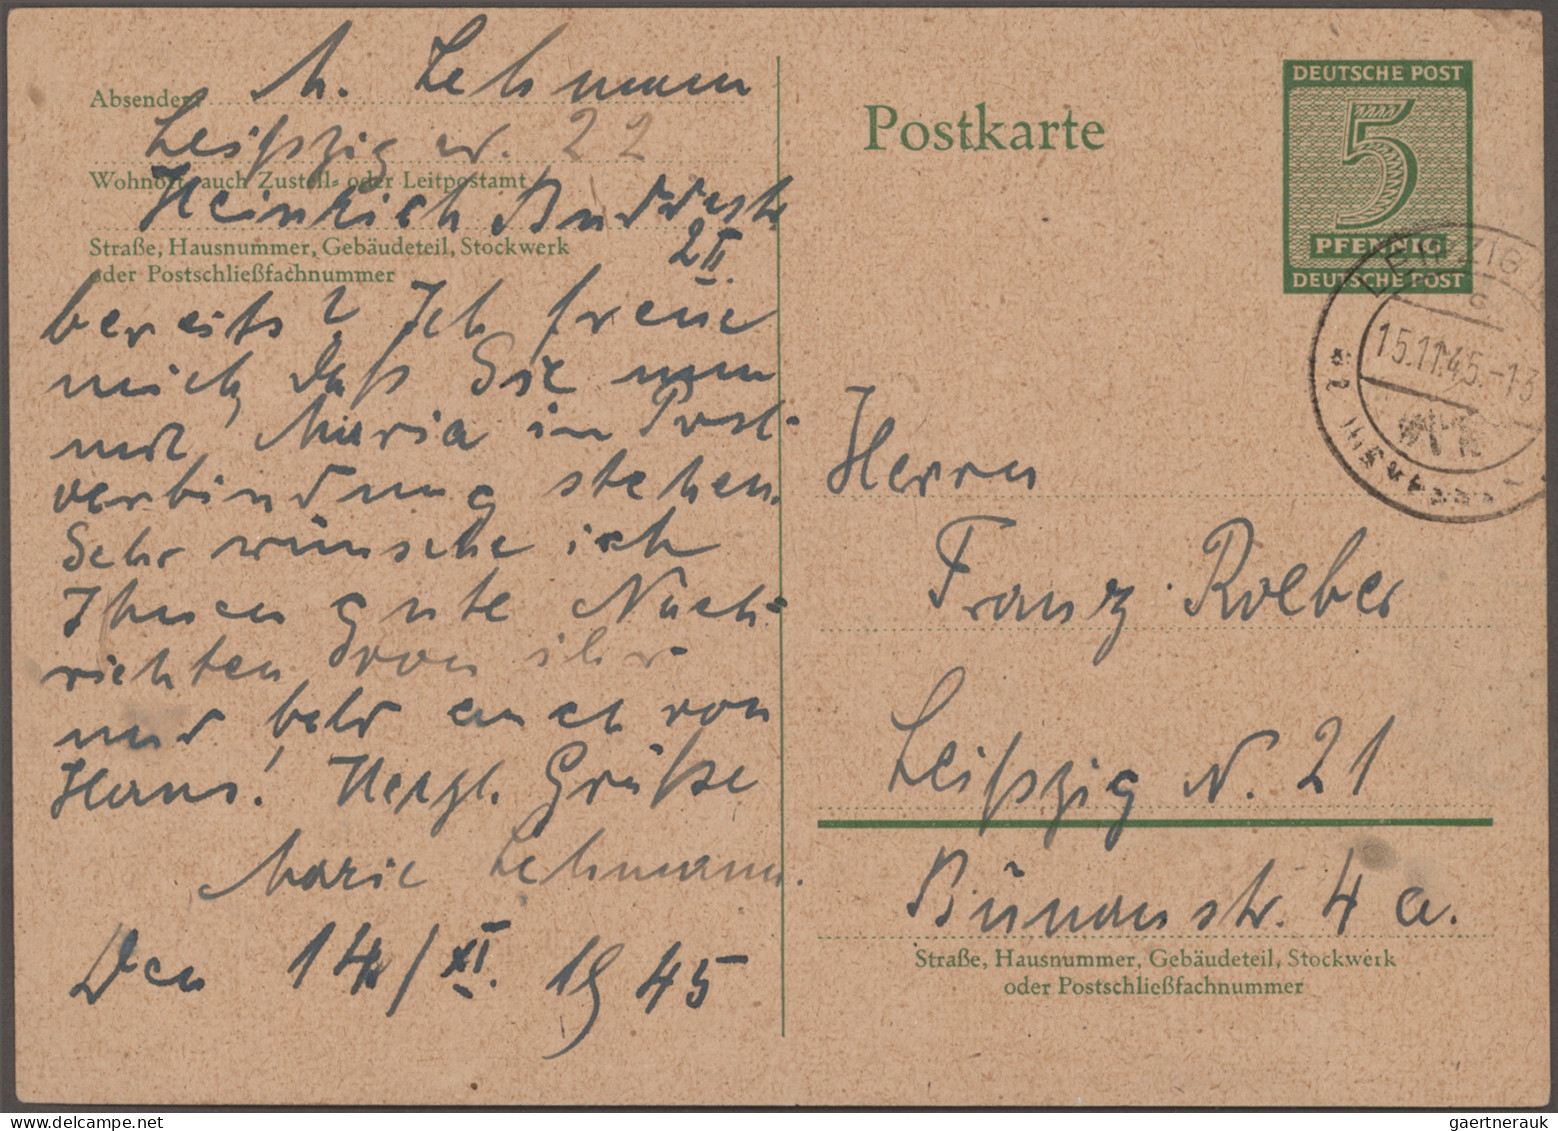 Absender:
M. Lehmann
Leipzig W. 22
Wohnort, auch Zustell- oder Leitpostamt
Heinrich Buddestr
2 II.
Straße, Hausnummer, Gebäudeteil, Stockwerk
oder Postschließfachnummer
bereits? Ich freue
mich, daß Sie nun
mit Maria in Post-
verbindung stehen.
Sehr wünsche ich
Ihnen gute Nach-
richten von ihr
und bald auch von
Hans! Herzl. Grüße
Marie Lehmann.
Den 14/XI. 1945
Postkarte
DEUTSCHE POST
5
PFENNIG
DEUTSCHE POST
LEIPZIG
15.11.45.-13
Herrn
Franz Roeber
Leipzig N. 21
Bünaustr. 4 a.
Straße, Hausnummer, Gebäudeteil, Stockwerk
oder Postschließfachnummer
gaertnerauk